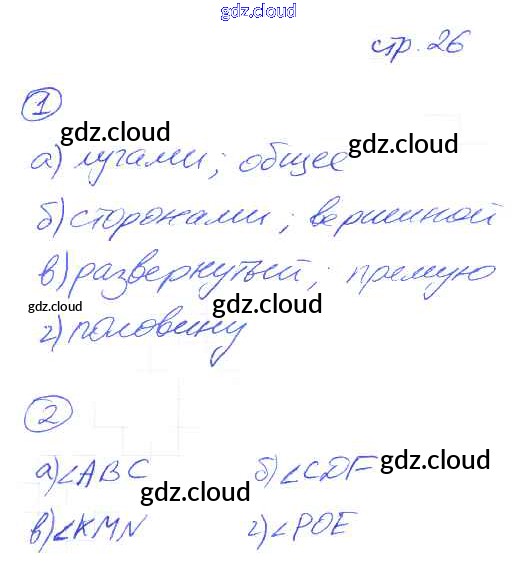 gdz.cloud
стр. 26
1
gdz.cloud
а) лугами; общее gdz.cloud
б) сторонами; вершиной
в) развернутый; премую
gdz.cloud gdz.cloud
г) половину
2
gdz.cloud
а) ∠ABC б) ∠CDF
gdz.cloud
в) ∠KMN г) ∠POE
gdz.cloud